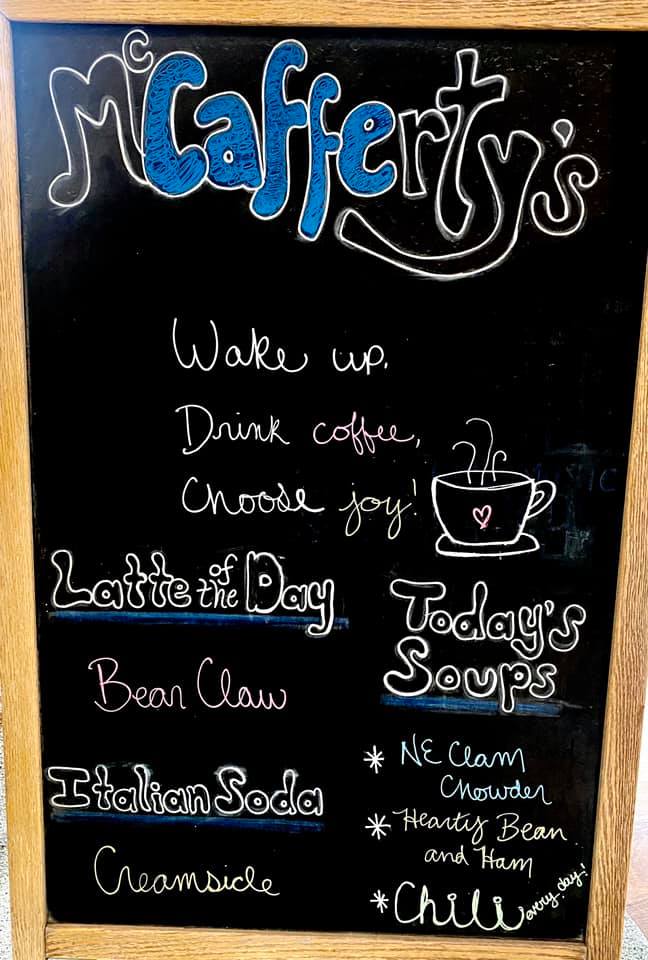 McCafferty's
Wake up.
Drink coffee,
Choose joy!
Latte of the Day
Bear Claw
Italian Soda
Creamsicle
Today's
Soups
* NE Clam
Chowder
* Hearty Bean
and Ham
* Chili every day!